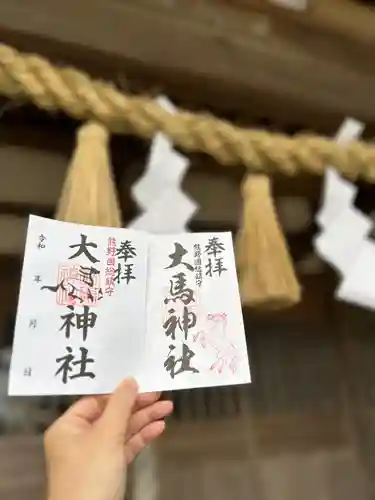 奉拝
熊野国総鎮守
大馬神社
奉拝
熊野国総鎮守
大馬神社
令和 年 月 日